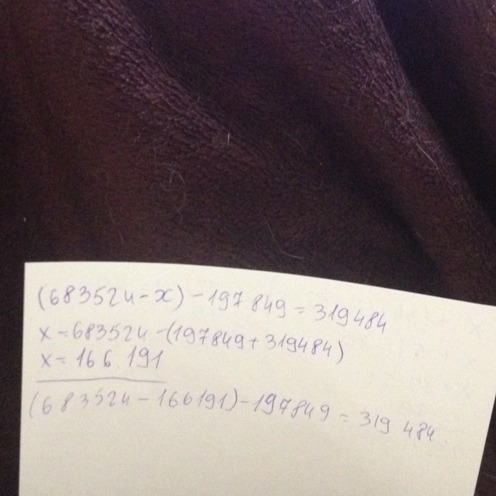 (683524-x)-197849=319484
x=683524-(197849+319484)
x=166 191
(683524-166191)-197849=319 484